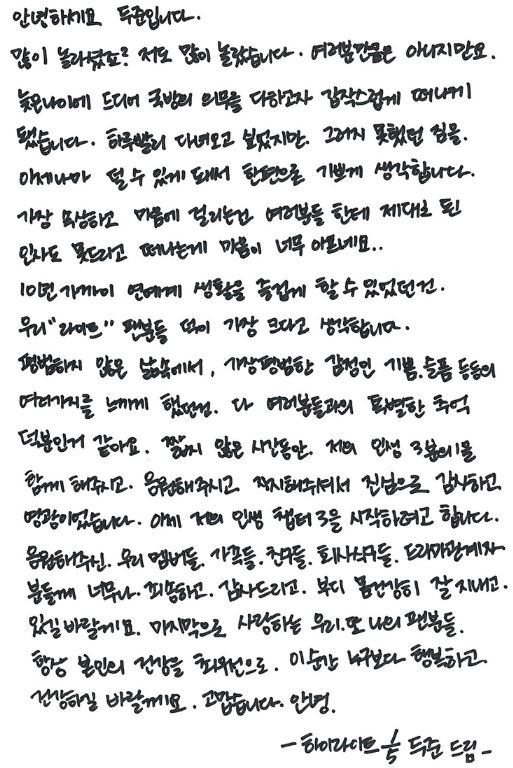 안녕하세요 두준입니다.
많이 놀라셨죠? 저도 많이 놀랐습니다. 여러분만큼은 아니지만요.
늦은나이에 드디어 국방의 의무를 다하고자 갑작스럽게 떠나게
됐습니다. 하루빨리 다녀오고 싶었지만. 그러지 못했던 짐을.
이제나마 덜 수 있게 돼서 한편으로 기쁘게 생각합니다.
가장 속상하고 마음에 걸리는건 여러분들 한테 제대로 된
인사도 못드리고 떠나는게 마음이 너무 아프네요..
10년 가까이 연예계 생활을 즐겁게 할 수 있었던건.
우리 "라이트" 팬분들 덕이 가장 크다고 생각합니다.
평범하지 않은 삶속에서, 가장평범한 감정인 기쁨.슬픔 등등의
여러가지를 느끼게 했던건. 다 여러분들과의 특별한 추억
덕분인거 같아요. 짧지 않은 시간동안. 저의 인생 3분의1을
함께 해주시고. 응원해주시고. 지지해주셔서 진심으로 감사하고
영광이었습니다. 이제 저의 인생 챕터 3을 시작하려고 합니다.
응원해주신. 우리 멤버들. 가족들. 친구들. 회사식구들. 드라마관계자
분들께 너무나. 죄송하고. 감사드리고. 부디 몸건강히 잘 지내고.
있길 바랄게요. 마지막으로 사랑하는 우리.또 나의 팬분들.
항상 본인의 건강을 최우선으로. 이순간 누구보다 행복하고.
건강하길 바랄께요. 고맙습니다. 안녕.
- 하이라이트 윤두준 드림 -